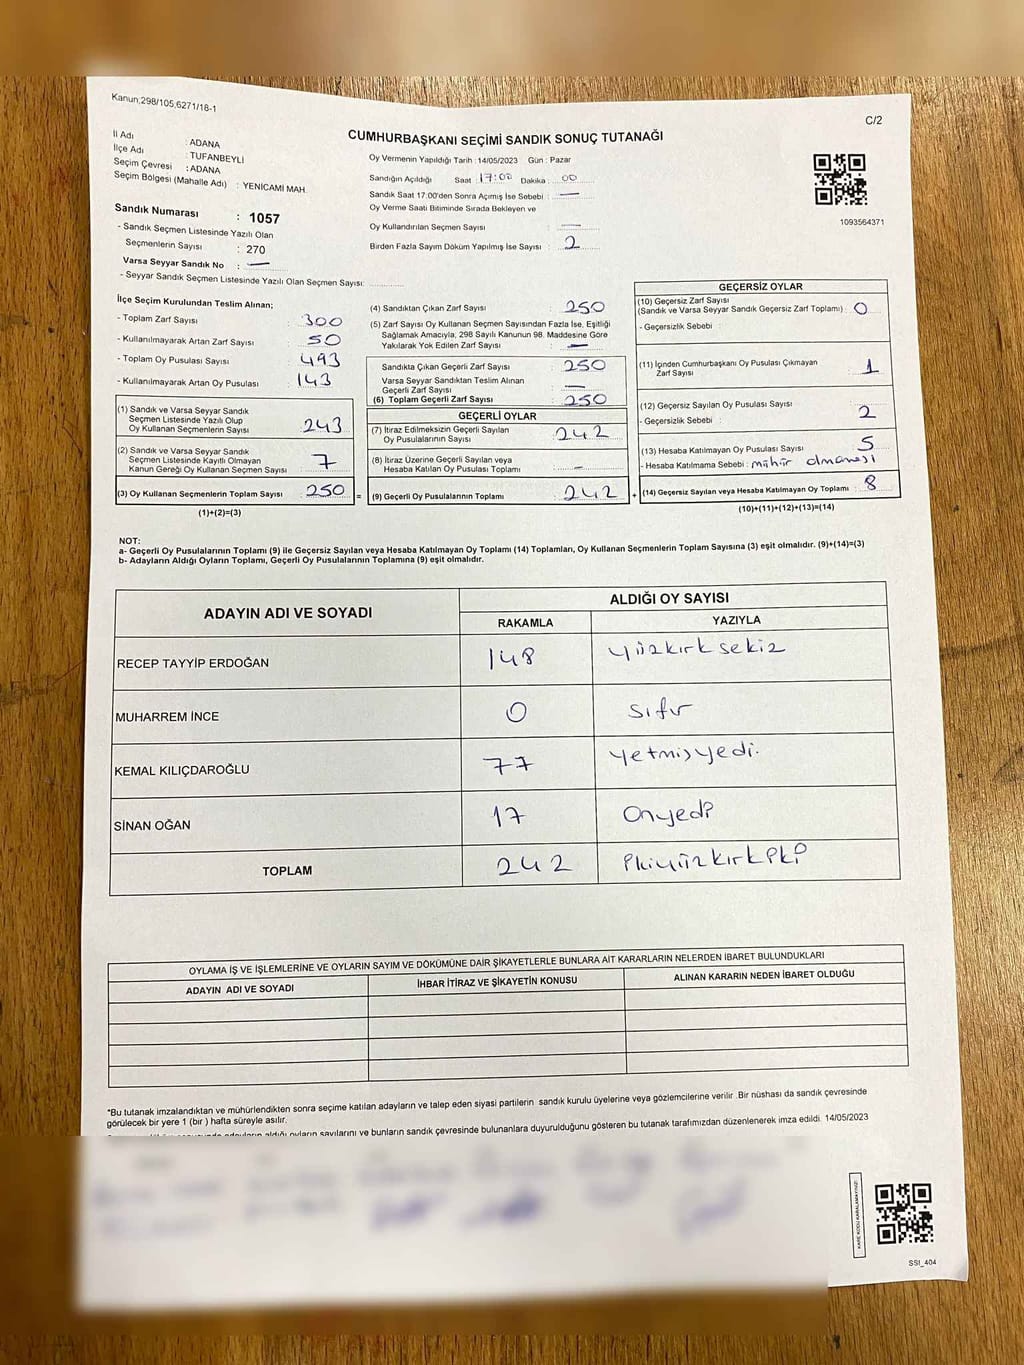 Kanun,298/105,6271/18-1
C/2
CUMHURBAŞKANI SEÇİMİ SANDIK SONUÇ TUTANAĞI
İl Adı : ADANA
İlçe Adı : TUFANBEYLİ
Seçim Çevresi : ADANA
Seçim Bölgesi (Mahalle Adı) : YENİCAMİ MAH.
Oy Vermenin Yapıldığı Tarih : 14/05/2023 Gün : Pazar
Sandığın Açıldığı Saat 17:00 Dakika : 00
Sandık Saat 17.00'den Sonra Açımış İse Sebebi : —
Oy Verme Saati Bitiminde Sırada Bekleyen ve
Oy Kullandırılan Seçmen Sayısı : —
Birden Fazla Sayım Döküm Yapılmış İse Sayısı : 2
1093564371
Sandık Numarası : 1057
- Sandık Seçmen Listesinde Yazılı Olan
Seçmenlerin Sayısı : 270
Varsa Seyyar Sandık No : —
- Seyyar Sandık Seçmen Listesinde Yazılı Olan Seçmen Sayısı:
İlçe Seçim Kurulundan Teslim Alınan;
- Toplam Zarf Sayısı : 300
- Kullanılmayarak Artan Zarf Sayısı : 50
- Toplam Oy Pusulası Sayısı : 493
- Kullanılmayarak Artan Oy Pusulası : 143
(1) Sandık ve Varsa Seyyar Sandık
Seçmen Listesinde Yazılı Olup
Oy Kullanan Seçmenlerin Sayısı : 243
(2) Sandık ve Varsa Seyyar Sandık
Seçmen Listesinde Kayıtlı Olmayan
Kanun Gereği Oy Kullanan Seçmen Sayısı : 7
(3) Oy Kullanan Seçmenlerin Toplam Sayısı : 250 =
(1)+(2)=(3)
(4) Sandıktan Çıkan Zarf Sayısı : 250
(5) Zarf Sayısı Oy Kullanan Seçmen Sayısından Fazla İse, Eşitliği
Sağlamak Amacıyla, 298 Sayılı Kanunun 98. Maddesine Göre
Yakılarak Yok Edilen Zarf Sayısı : —
Sandıkta Çıkan Geçerli Zarf Sayısı : 250
Varsa Seyyar Sandıktan Teslim Alınan
Geçerli Zarf Sayısı : —
(6) Toplam Geçerli Zarf Sayısı : 250
GEÇERLİ OYLAR
(7) İtiraz Edilmeksizin Geçerli Sayılan
Oy Pusulalarının Sayısı : 242
(8) İtiraz Üzerine Geçerli Sayılan veya
Hesaba Katılan Oy Pusulası Toplamı : —
(9) Geçerli Oy Pusulalarının Toplamı : 242 +
GEÇERSİZ OYLAR
(10) Geçersiz Zarf Sayısı
(Sandık ve Varsa Seyyar Sandık Geçersiz Zarf Toplamı) : 0
- Geçersizlik Sebebi :
(11) İçinden Cumhurbaşkanı Oy Pusulası Çıkmayan
Zarf Sayısı : 1
(12) Geçersiz Sayılan Oy Pusulası Sayısı : 2
- Geçersizlik Sebebi :
(13) Hesaba Katılmayan Oy Pusulası Sayısı : 5
- Hesaba Katılmama Sebebi : mühür olmaması
(14) Geçersiz Sayılan veya Hesaba Katılmayan Oy Toplamı : 8
(10)+(11)+(12)+(13)=(14)
NOT:
a- Geçerli Oy Pusulalarının Toplamı (9) ile Geçersiz Sayılan veya Hesaba Katılmayan Oy Toplamı (14) Toplamları, Oy Kullanan Seçmenlerin Toplam Sayısına (3) eşit olmalıdır. (9)+(14)=(3)
b- Adayların Aldığı Oyların Toplamı, Geçerli Oy Pusulalarının Toplamına (9) eşit olmalıdır.
ADAYIN ADI VE SOYADI ALDIĞI OY SAYISI
RAKAMLA YAZIYLA
RECEP TAYYİP ERDOĞAN 148 yüzkırksekiz
MUHARREM İNCE 0 sıfır
KEMAL KILIÇDAROĞLU 77 yetmişyedi.
SİNAN OĞAN 17 Onyedi
TOPLAM 242 ikiyüzkırkiki
OYLAMA İŞ VE İŞLEMLERİNE VE OYLARIN SAYIM VE DÖKÜMÜNE DAİR ŞİKAYETLERLE BUNLARA AİT KARARLARIN NELERDEN İBARET BULUNDUKLARI
ADAYIN ADI VE SOYADI İHBAR İTİRAZ VE ŞİKAYETİN KONUSU ALINAN KARARIN NEDEN İBARET OLDUĞU
*Bu tutanak imzalandıktan ve mühürlendikten sonra seçime katılan adayların ve talep eden siyasi partilerin sandık kurulu üyelerine veya gözlemcilerine verilir .Bir nüshası da sandık çevresinde
görülecek bir yere 1 (bir ) hafta süreyle asılır.
adayların aldığı oyların sayılarını ve bunların sandık çevresinde bulunanlara duyurulduğunu gösteren bu tutanak tarafımızdan düzenlenerek imza edildi. 14/05/2023
KARE KODU KARALAMAYINIZ!
SSI_404